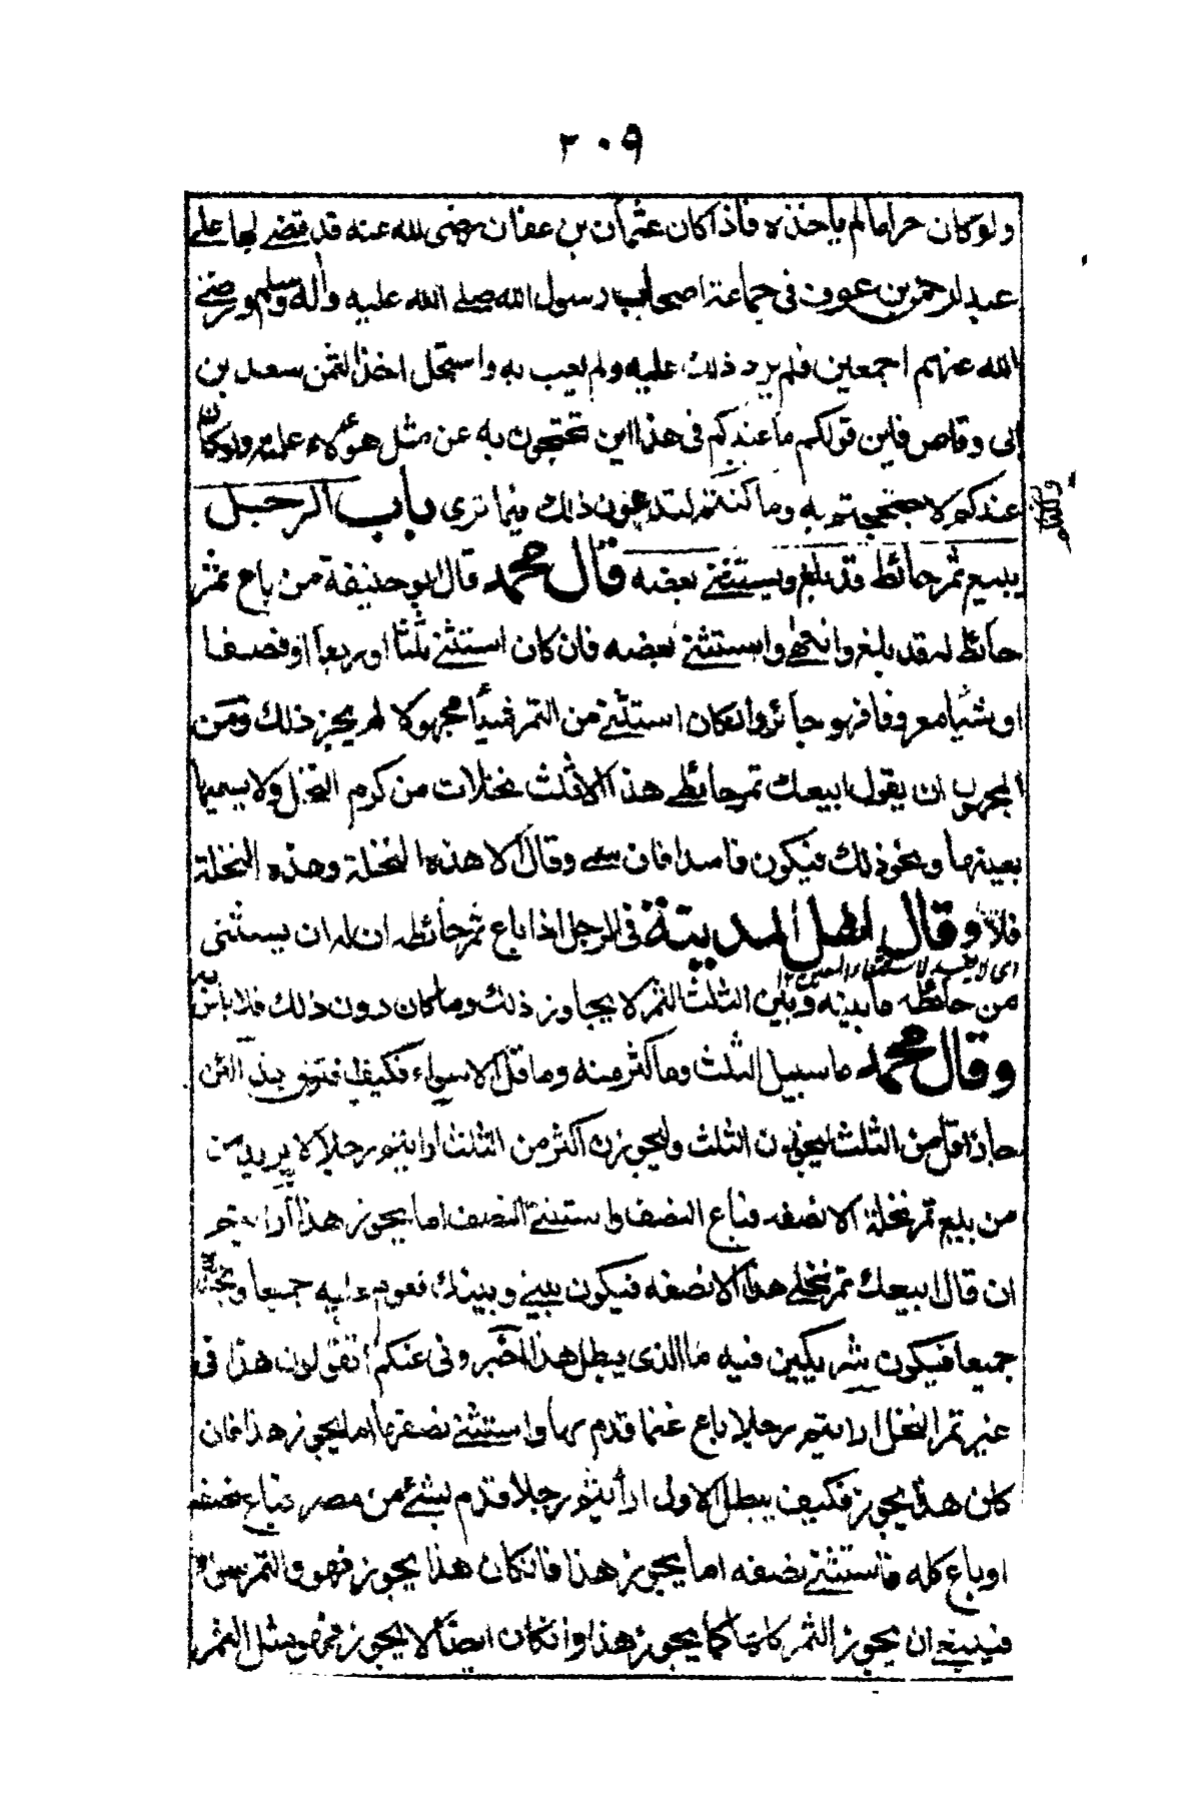 ٢٠٩
ولو كان حراما لم ياخذه فاذا كان عثمان بن عفان رضى الله عنه قد قضے لها علے
عبد الرحمن بن عوف فى جماعة اصحاب رسول الله صلے الله عليه واله وسلم ورضے
الله عنهم اجمعين فلم يرد ذلك عليه ولم يعب به واستحل اخذ الثمن سعد بن
ابى وقاص فاين قولكم ما عندكم فى هذا اين تحتجون به عن مثل هؤلاء علمتم ولو كان
عندكم لاحتججتم به وما كنتم لتدعون ذلك فيما ترى باب الرجل
يبيع ثمر حائط قد بلغ ويستثنے بعضه قال محمد قال ابو حنيفة من باع ثمر
حائط له قد بلغ وانتهى واستثنے بعضه فان كان استثنے ثلثا او ربعا او نصفا
او شيأ معروفا فهو جائز وان كان استثنے من الثمر شيأ مجهولا لم يجز ذلك ومن
المجهول ان يقول ابيعك ثمر حائطے هذا الا ثلث نخلات من كرم النخل ولا يسميها
بعينها ونحو ذلك فيكون فاسدا فان سمے وقال الا هذه النخلة وهذه النخلة
فلا وقال اهل المدينة فى الرجل اذا باع ثمر حائطه ان له ان يستثنى
من حائطه ما بينه وبين الثلث الثمر لا يجاوز ذلك وما كان دون ذلك فلا باس به
وقال محمد ما سبيل الثلث وما اكثر منه وما قل الا سواء فكيف
جاز اقل من الثلث ليجوزن الثلث وليجوزن اكثر من الثلث ارايتم رجلا لا يريد من
من بيع ثمر نخلة الا نصفه فباع النصف واستثنے النصف اما يجوز هذا ارايتم
ان قال ابيعك ثمر نخلے هذا الا نصفه فيكون بينے وبينك نقوم عليه جميعا
جميعا فيكون شريكين فيه ما الذى يبطل هذا اخبرونى عنكم اتقولون هذا فى
غير ثمر النخل ارايتم رجلا باع غنما قدم بها واستثنے نصفها اما يجوز هذا فان
كان هذا يجوز فكيف يبطل الاولى ارأيتم رجلا قدم بشئ من مصر فباع نصفه
او باع كله فاستثنے نصفه اما يجوز هذا فان كان هذا يجوز فهو والثمر سواء
فينبغے ان يجوز الثمر كما يجوز هذا وان كان ايضا لا يجوز فهو مثل الثمر